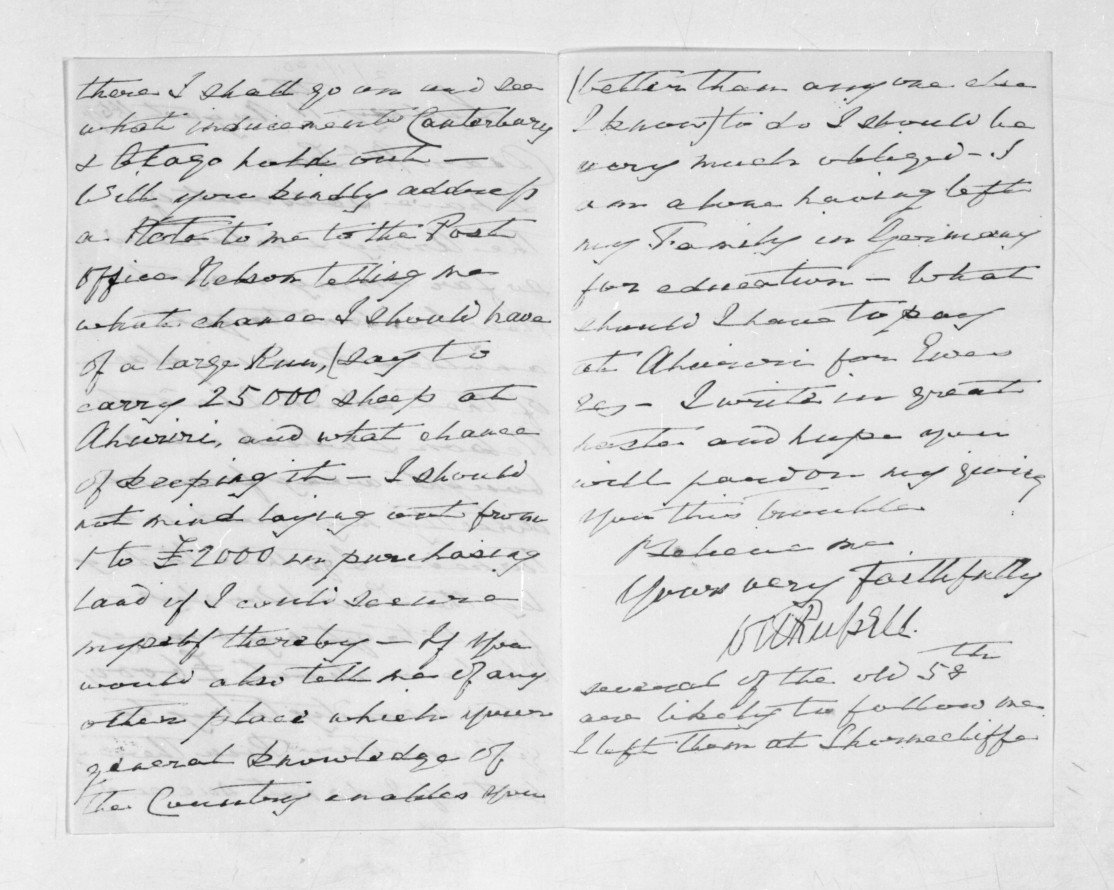 there I shall go on and see
what inducements Canterbury
& Otago hold out —
Will you kindly address
a Note to me to the Post
office Nelson telling me
what chance I should have
of a large Run, (say to
carry 25000 sheep at
Ahuriri, and what chance
of keeping it — I should
not mind laying out from
1 to £2000 in purchasing
land if I could secure
myself thereby — If you
would also tell me of any
other place which your
general knowledge of
the Country enables you
(better than any one else
I know) to do I should be
very much obliged — I
am alone having left
my Family in Germany
for education — What
should I have to pay
at Ahuriri for Ewes
I write in great
haste and hope you
will pardon my giving
you this trouble
Believe me
Yours very faithfully
Russell.
several of the old 58th
are likely to follow me
I left them at Shorncliffe